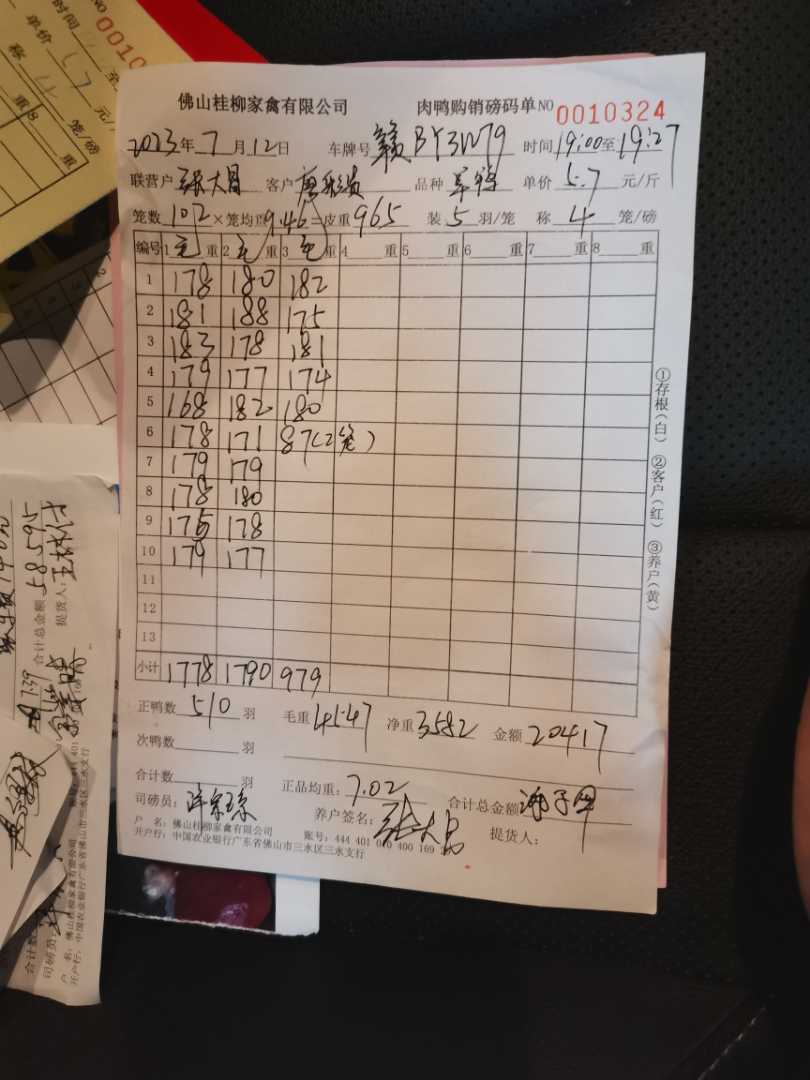 佛山桂柳家禽有限公司 肉鸭购销磅码单 NO 0010324
2023年7月12日 车牌号 赣BY3W79 时间 19:00至19:27
联营户 张大昌 客户 品种 单价 5.7 元/斤
笼数 102 × 笼均重 9.46 = 皮重 965 装 5 羽/笼 称 4 笼/磅
编号 1 毛 重 2 毛 重 3 毛 重 4 重 5 重 6 重 7 重 8 重
1 178 180 182
2 181 188 175
3 183 178 181
4 179 177 174
5 168 182 180
6 178 171 87(2笼)
7 179 179
8 178 180
9 175 178
10 179 177
11
12
13
小计 1778 1790 979
正鸭数 510 羽 毛重 4547 净重 3582 金额 20417
次鸭数 羽
合计数 羽 正品均重: 7.02 合计总金额
司磅员: 养户签名: 张大昌 提货人:
户 名: 佛山桂柳家禽有限公司 账号: 444 401 010 400 169
开户行: 中国农业银行广东省佛山市三水区三水支行
①存根(白) ②客户(红) ③养户(黄)
NO 0010
时间 至
单价 5.7 元/
称 4 笼/磅
重 8 重
合计总金额 58595
提货人:
合计数
司磅员:
户 名: 佛山桂柳家禽有限公司
开户行: 中国农业银行广东省佛山市三水区三水支行